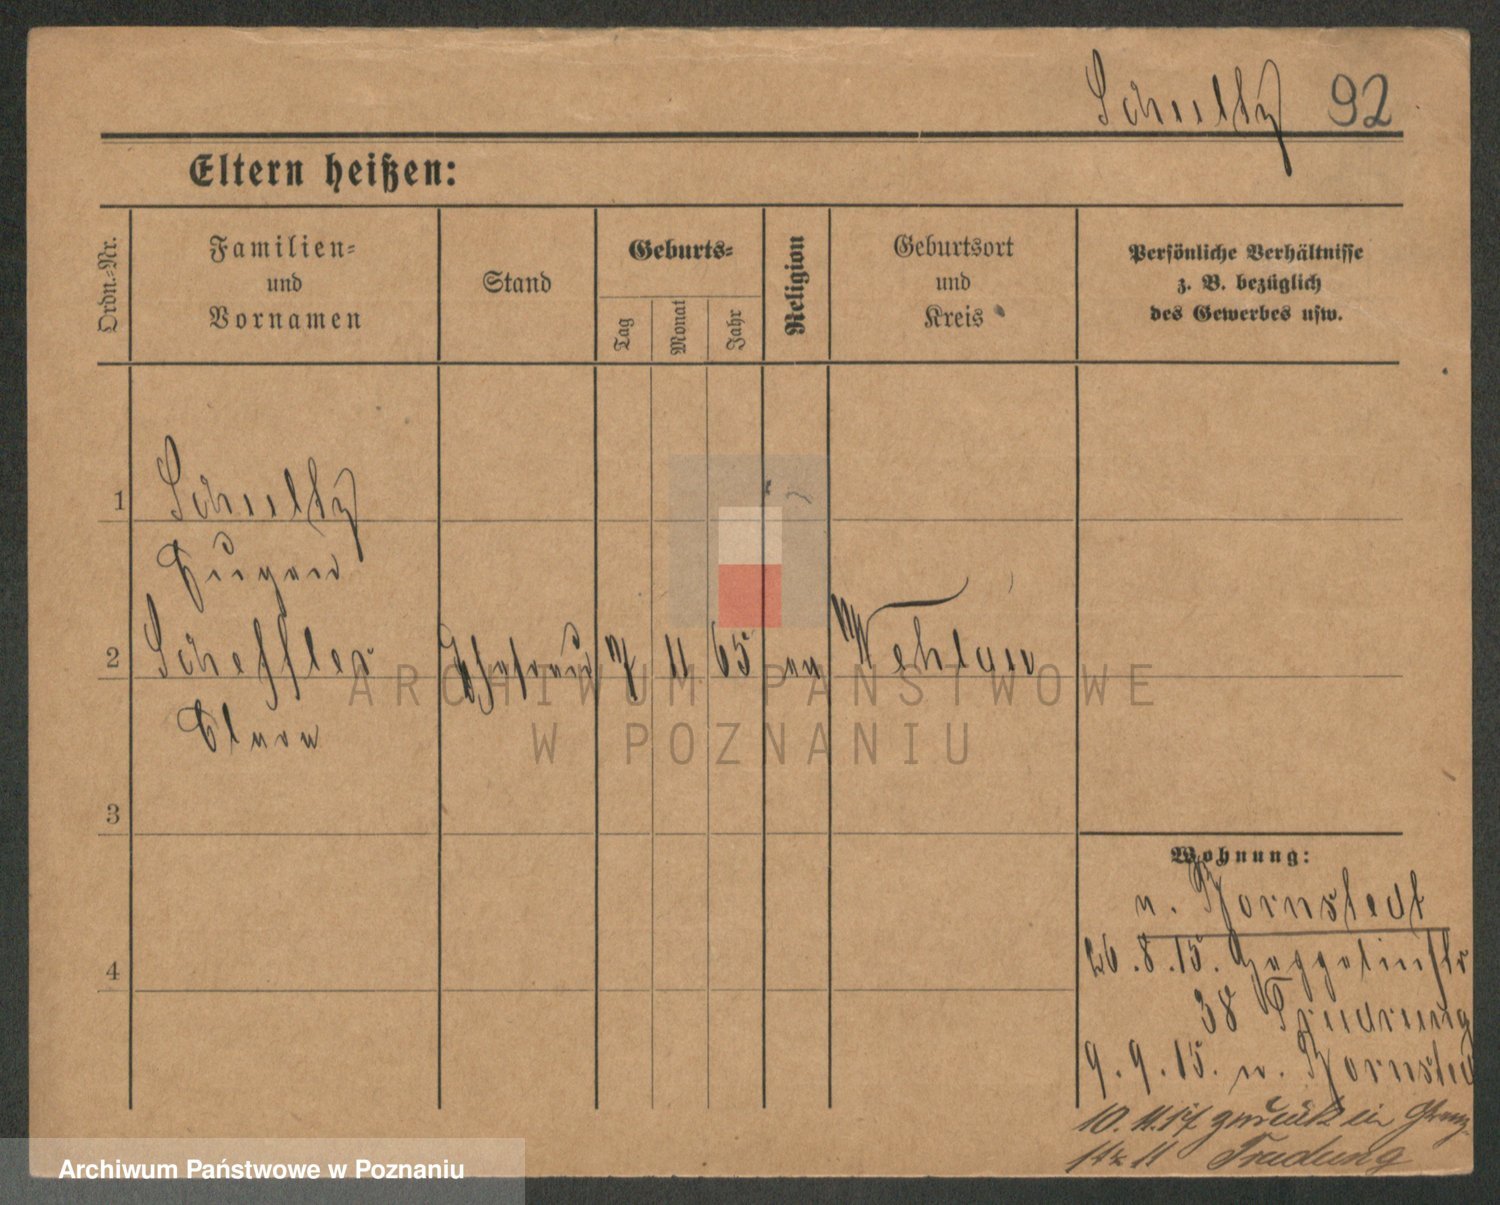 Schultz 92
Eltern heißen:
Ordn.-Nr.
Familien-
und
Vornamen
Stand
Geburts-
Tag
Monat
Jahr
Religion
Geburtsort
und
Kreis
Persönliche Verhältnisse
z. B. bezüglich
des Gewerbes usw.
1 Schultz
Eugen
2 Scheffler Ehefrau 7 11 65 ev Wehlau
3
4
Wohnung:
n. Bornstedt
26.8.15.
38 Trudrung
9.9.15. n. Bornsted
10.11.17 zurück in
Trudung
ARCHIWUM PAŃSTWOWE
W POZNANIU
Archiwum Państwowe w Poznaniu